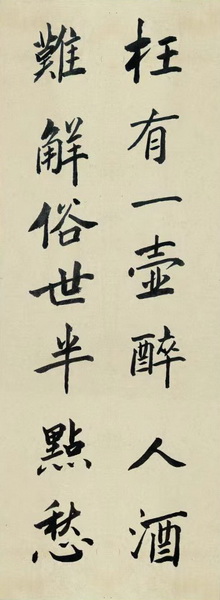 枉有一壺醉人酒
難解俗世半點愁